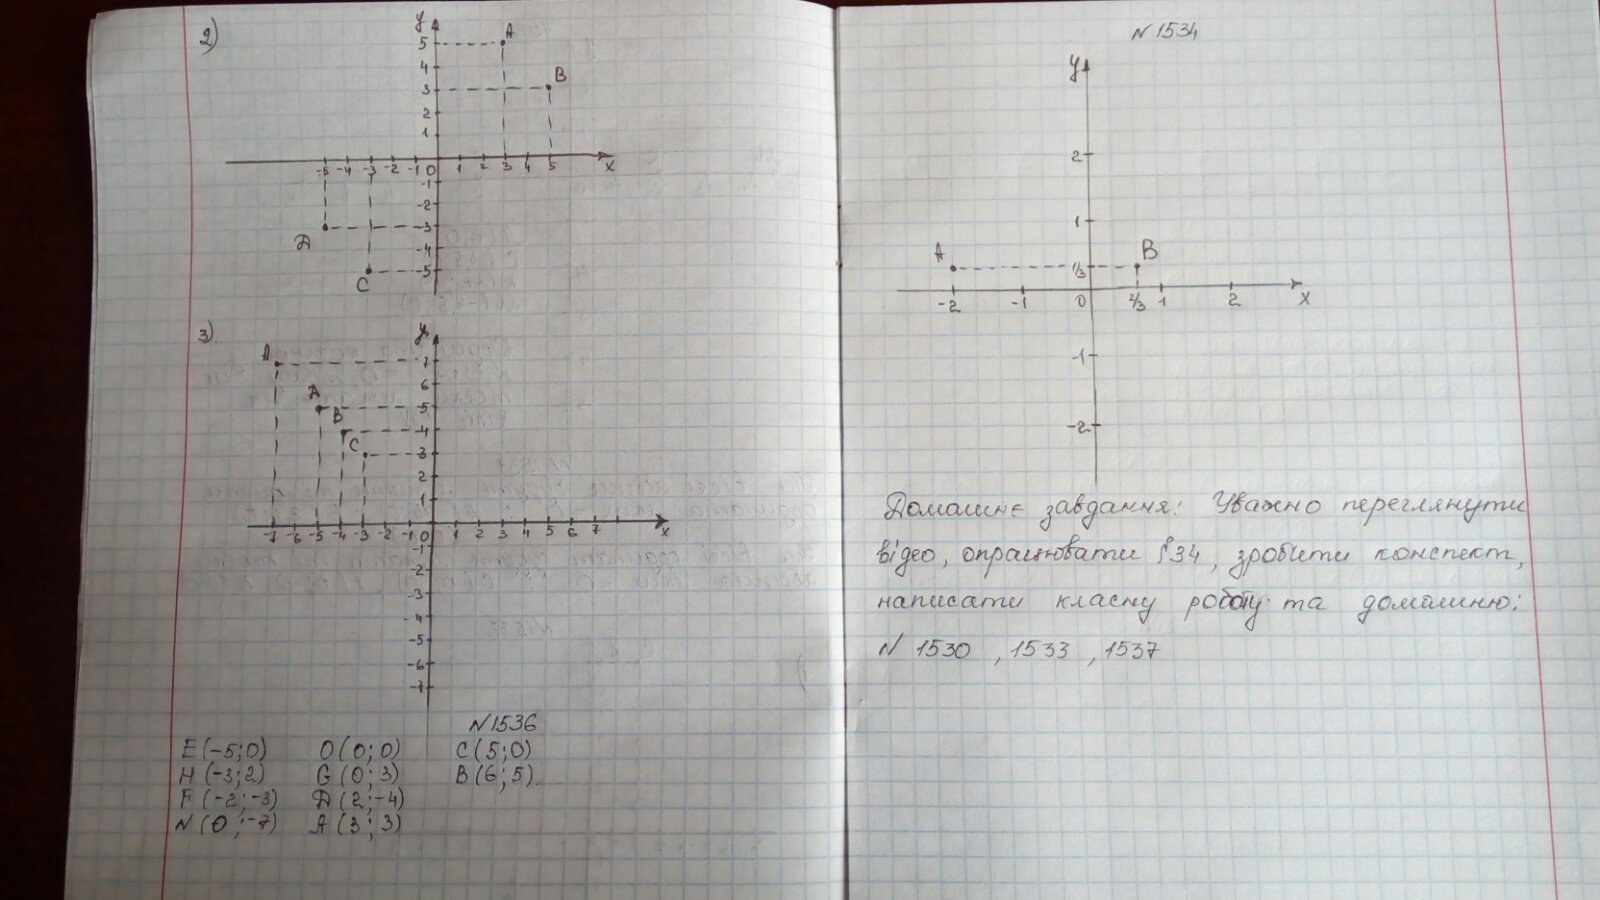 2)
y
5
4
3
2
1
A
B
-5 -4 -3 -2 -1 0 1 2 3 4 5 x
-1
-2
-3
-4
-5
D
C
3)
y
A
7
6
A
5
B
4
C
3
2
1
-7 -6 -5 -4 -3 -2 -1 0 1 2 3 4 5 6 7 x
-1
-2
-3
-4
-5
-6
-7
N1536
E(-5;0) O(0;0) C(5;0)
H(-3;2) G(0;3) B(6;5)
F(-2;-3) D(2;-4)
N(0;-7) A(3;3)
N1534
y
2
1
A B
1/3
-2 -1 0 2/3 1 2 x
-1
-2
Домашнє завдання: Уважно переглянути
відео, опрацювати §34, зробити конспект,
написати класну роботу та домашню:
N 1530, 1533, 1537